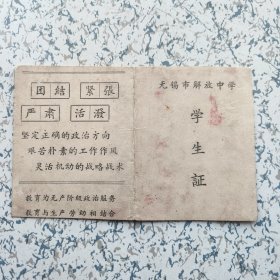 团结 紧張
严肃 活潑
坚定正确的政治方向
艰苦朴素的工作作风
灵活机动的战略战术
教育为无产阶级政治服务
教育与生产劳动相结合
无锡市解放中学
学生証